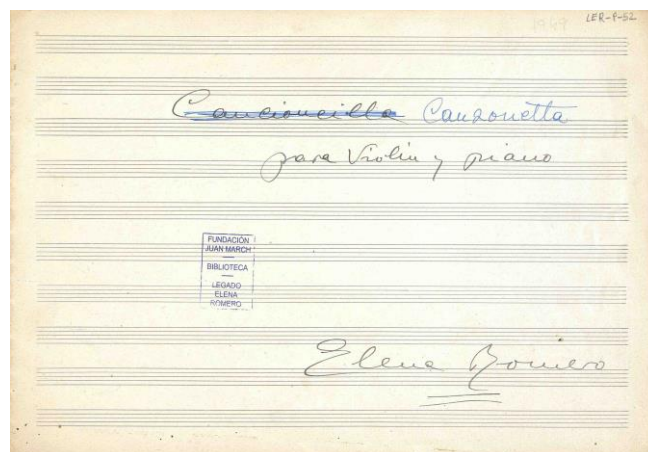 1949 LER-P-52
Cancioncilla Canzonetta
para Violin y piano
FUNDACIÓN
JUAN MARCH
BIBLIOTECA
LEGADO
ELENA
ROMERO
Elena Romero